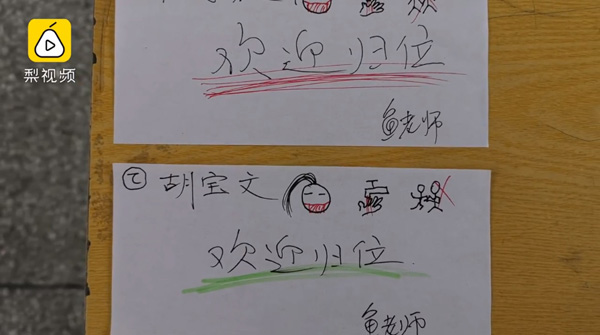 梨视频
欢迎归位
鱼老师
胡宝文
欢迎归位
鱼老师